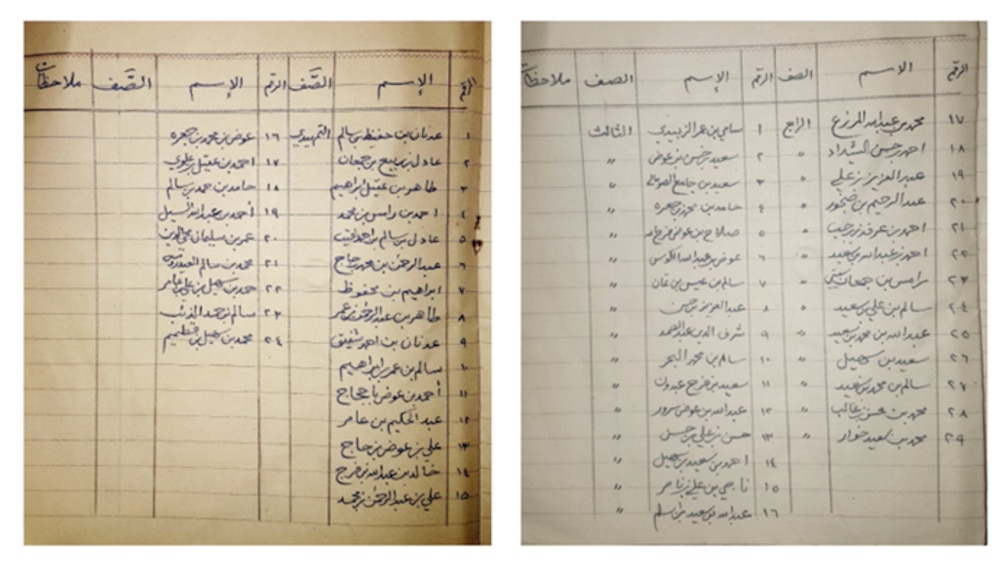 الرقم الإسم الصَّف الرقم الإسم الصَّف ملاحظات
١ عدنان بن حفيظ بن سالم التمهيدي ١٦ عوض بن محمد بن جمعره
٢ عادل بن ربيع بن جمعان ١٧ احمد بن عقيل بن علوي
٣ طاهر بن عقيل ابراهيم ١٨ حامد بن حمد بن سالم
٤ احمد بن راس بن محمد ١٩ أحمد بن عبدالله السيل
٥ عادل بن سالم بن احمد ٢٠ عمر بن سلمان
٦ عبدالرحمن بن محمد حاج ٢١ محمد بن سالم العيدروس
٧ ابراهيم بن محفوظ ٢٢ حمد بن سهيل بن علي عامر
٨ طاهر بن عبدالرحمن بن عمر ٢٣ سالم بن حمد الذئب
٩ عدنان بن احمد شفيق ٢٤ محمد بن سهيل بن قطميم
١٠ سالم بن عمر بن ابراهيم
١١ أحمد بن عوض باحجاج
١٢ عبد الحكيم بن عامر
١٣ علي بن عوض بن حاج
١٤ خالد بن عبدالله بن فرج
١٥ علي بن عبدالرحمن بن محمد
الرقم الاسم الصف الرقم الإسم الصف ملاحظات
١٧ محمد بن عبدالله المزرع الرابع ١ سامي بن عمر الزبيدي الثالث
١٨ احمد بن حسن الشداد " ٢ سعيد بن حسن بن عوض "
١٩ عبدالعزيز بن علي " ٣ سعيد بن جامع الصومالي "
٢٠ عبدالرحيم بن ضحور " ٤ حامد بن محمد بن جمعره "
٢١ احمد بن عرفه بن رجب " ٥ صلاح بن عوض بن فرج "
٢٢ احمد بن عبدالله بن سعيد " ٦ عوض بن عبدالله الكوس "
٢٣ راس بن جمعان " ٧ سالم بن عيسى بن "
٢٤ سالم بن علي بن سعيد " ٨ عبدالعزيز بن حسن "
٢٥ عبدالله بن محمد بن سعيد " ٩ شرف الدين عبدالصمد "
٢٦ سعيد بن سهيل " ١٠ سالم بن محمد البحر "
٢٧ سالم بن محمد بن سعيد " ١١ سعيد بن فرج عبدون "
٢٨ محمد بن محسن بن غالب " ١٢ عبدالله بن عوض سرور "
٢٩ محمد بن سعيد خوار " ١٣ حسن بن علي بن حسن "
١٤ احمد بن سعيد بن سهيل "
١٥ ناجي بن علي بن ناصر "
١٦ عبدالله بن سعيد بن سلم "